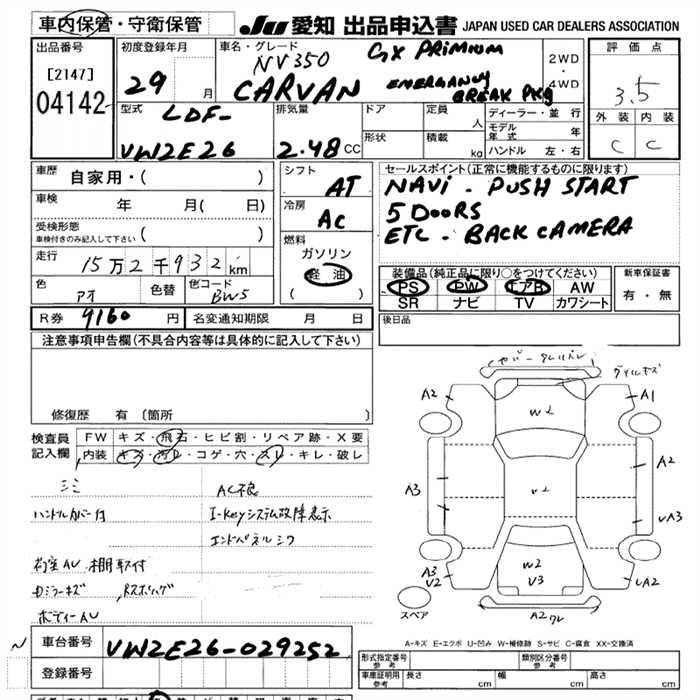 車内保管・守衛保管
JU 愛知 出品申込書 JAPAN USED CAR DEALERS ASSOCIATION
出品番号
[2147]
04142
初度登録年月
29 月
車名・グレード
NV350 GX PRIMIUM
CARVAN EMERGANCY
BREAK PKG
2WD
・
4WD
評価点
3.5
外装 内装
C C
型式
LDF-
VW2E26
排気量
2.48 CC
ドア
形状
定員 人
積載 kg
ディーラー・並行
モデル年式 年
ハンドル 左・右
車歴
自家用・( )
車検 年 月( 日)
受検形態
車検付きのみ記入して下さい ( )
走行 15万2千932km
色 アオ
色替
色コード BW5
シフト
AT
冷房
AC
燃料
ガソリン
軽油
( )
セールスポイント(正常に機能するものに限ります)
NAVi - PUSH START
5 DOORS
ETC - BACK CAMERA
装備品(純正品に限り○をつけてください)
PS PW エアB AW
SR ナビ TV カワシート
新車保証書
有・無
R券 9160 円 名変通知期限 月 日
後日品
注意事項申告欄(不具合内容等は具体的に記入して下さい)
修復歴 有 〔箇所 〕
検査員
記入欄
FW キズ・飛石・ヒビ割・リペア跡・X要
内装 キズ・汚れ・コゲ・穴・スレ・キレ・破レ
AC不良
ハンドルカバー付
I-Keyシステム故障表示
荷室AV 棚取付
Dミラーキズ
ボディーAV
A2
W2
A1
A3
W2
A2
A3
A3
V2
W2
V3
A2
スペア
A-キズ E-エクボ U-凹み W-補修跡 S-サビ C-腐食 XX-交換済
車台番号 VW2E26-029252
登録番号
形式指定番号
参考
類別区分番号
参考
車庫証明用
参考
長さ cm 幅 cm 高さ cm